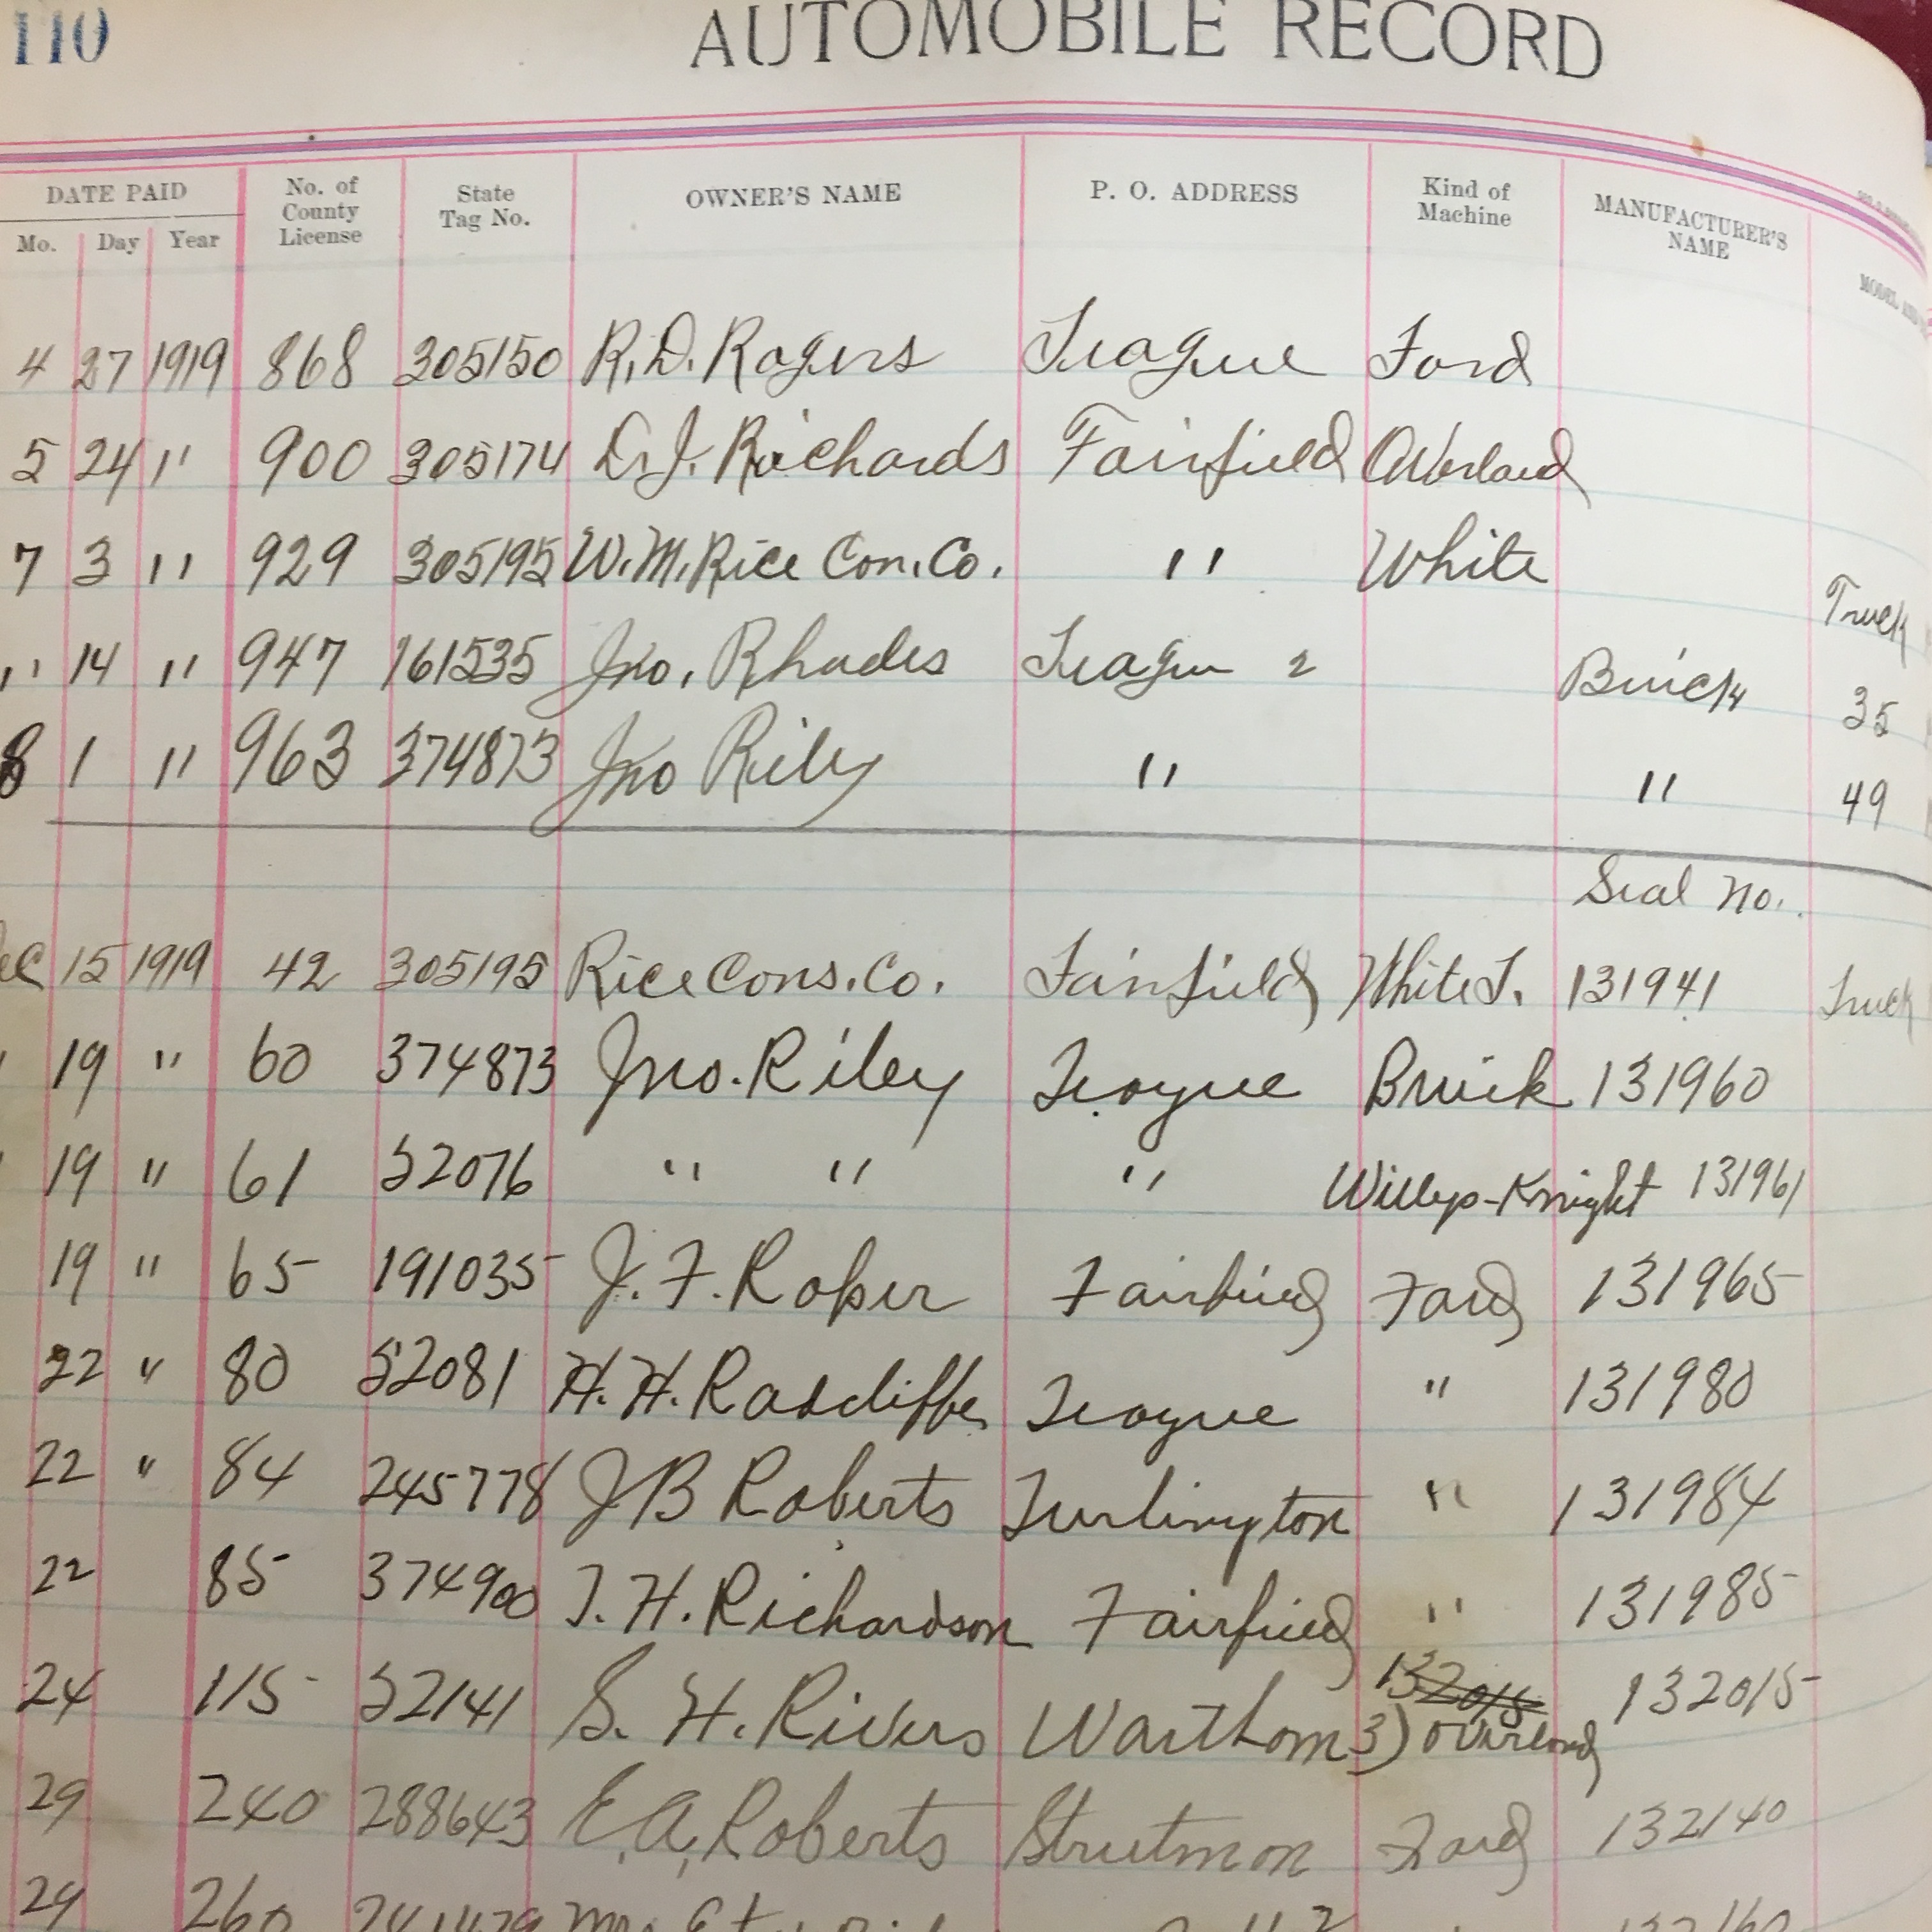 110
AUTOMOBILE RECORD
DATE PAID No. of County License State Tag No. OWNER'S NAME P. O. ADDRESS Kind of Machine MANUFACTURER'S NAME MODEL
Mo. Day Year
4 27 1919 868 305150 R.D. Rogers Teague Ford
5 24 " 900 305174 D.J. Richards Fairfield Overland
7 3 " 929 305195 W.M. Rice Con. Co. " White Truck
" 14 " 947 161535 Jno. Rhodes Teague 2 Buick 35
8 1 " 963 374873 Jno Riley " " 49
Seal No.
15 1919 42 305195 Rice Cons. Co. Fairfield White T. 131941 Truck
19 " 60 374873 Jno. Riley Teague Buick 131960
19 " 61 52076 " " " Willys-Knight 131961
19 " 65 191035 J. F. Roper Fairfield Ford 131965
22 " 80 52081 H. H. Radcliffe Teague " 131980
22 " 84 245778 J B Roberts Turlington " 131984
22 85 374900 T. H. Richardson Fairfield " 131985
132015
24 115 52141 S. H. Rivers Wortham 3) Overland 132015
29 240 288643 E.A. Roberts Streetman Ford 132140
29 260 132160